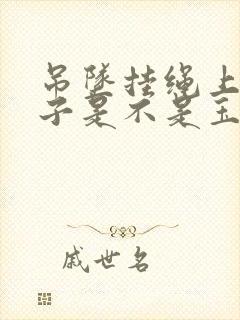 吊隧挂绳上
子是不是玉
戚世名